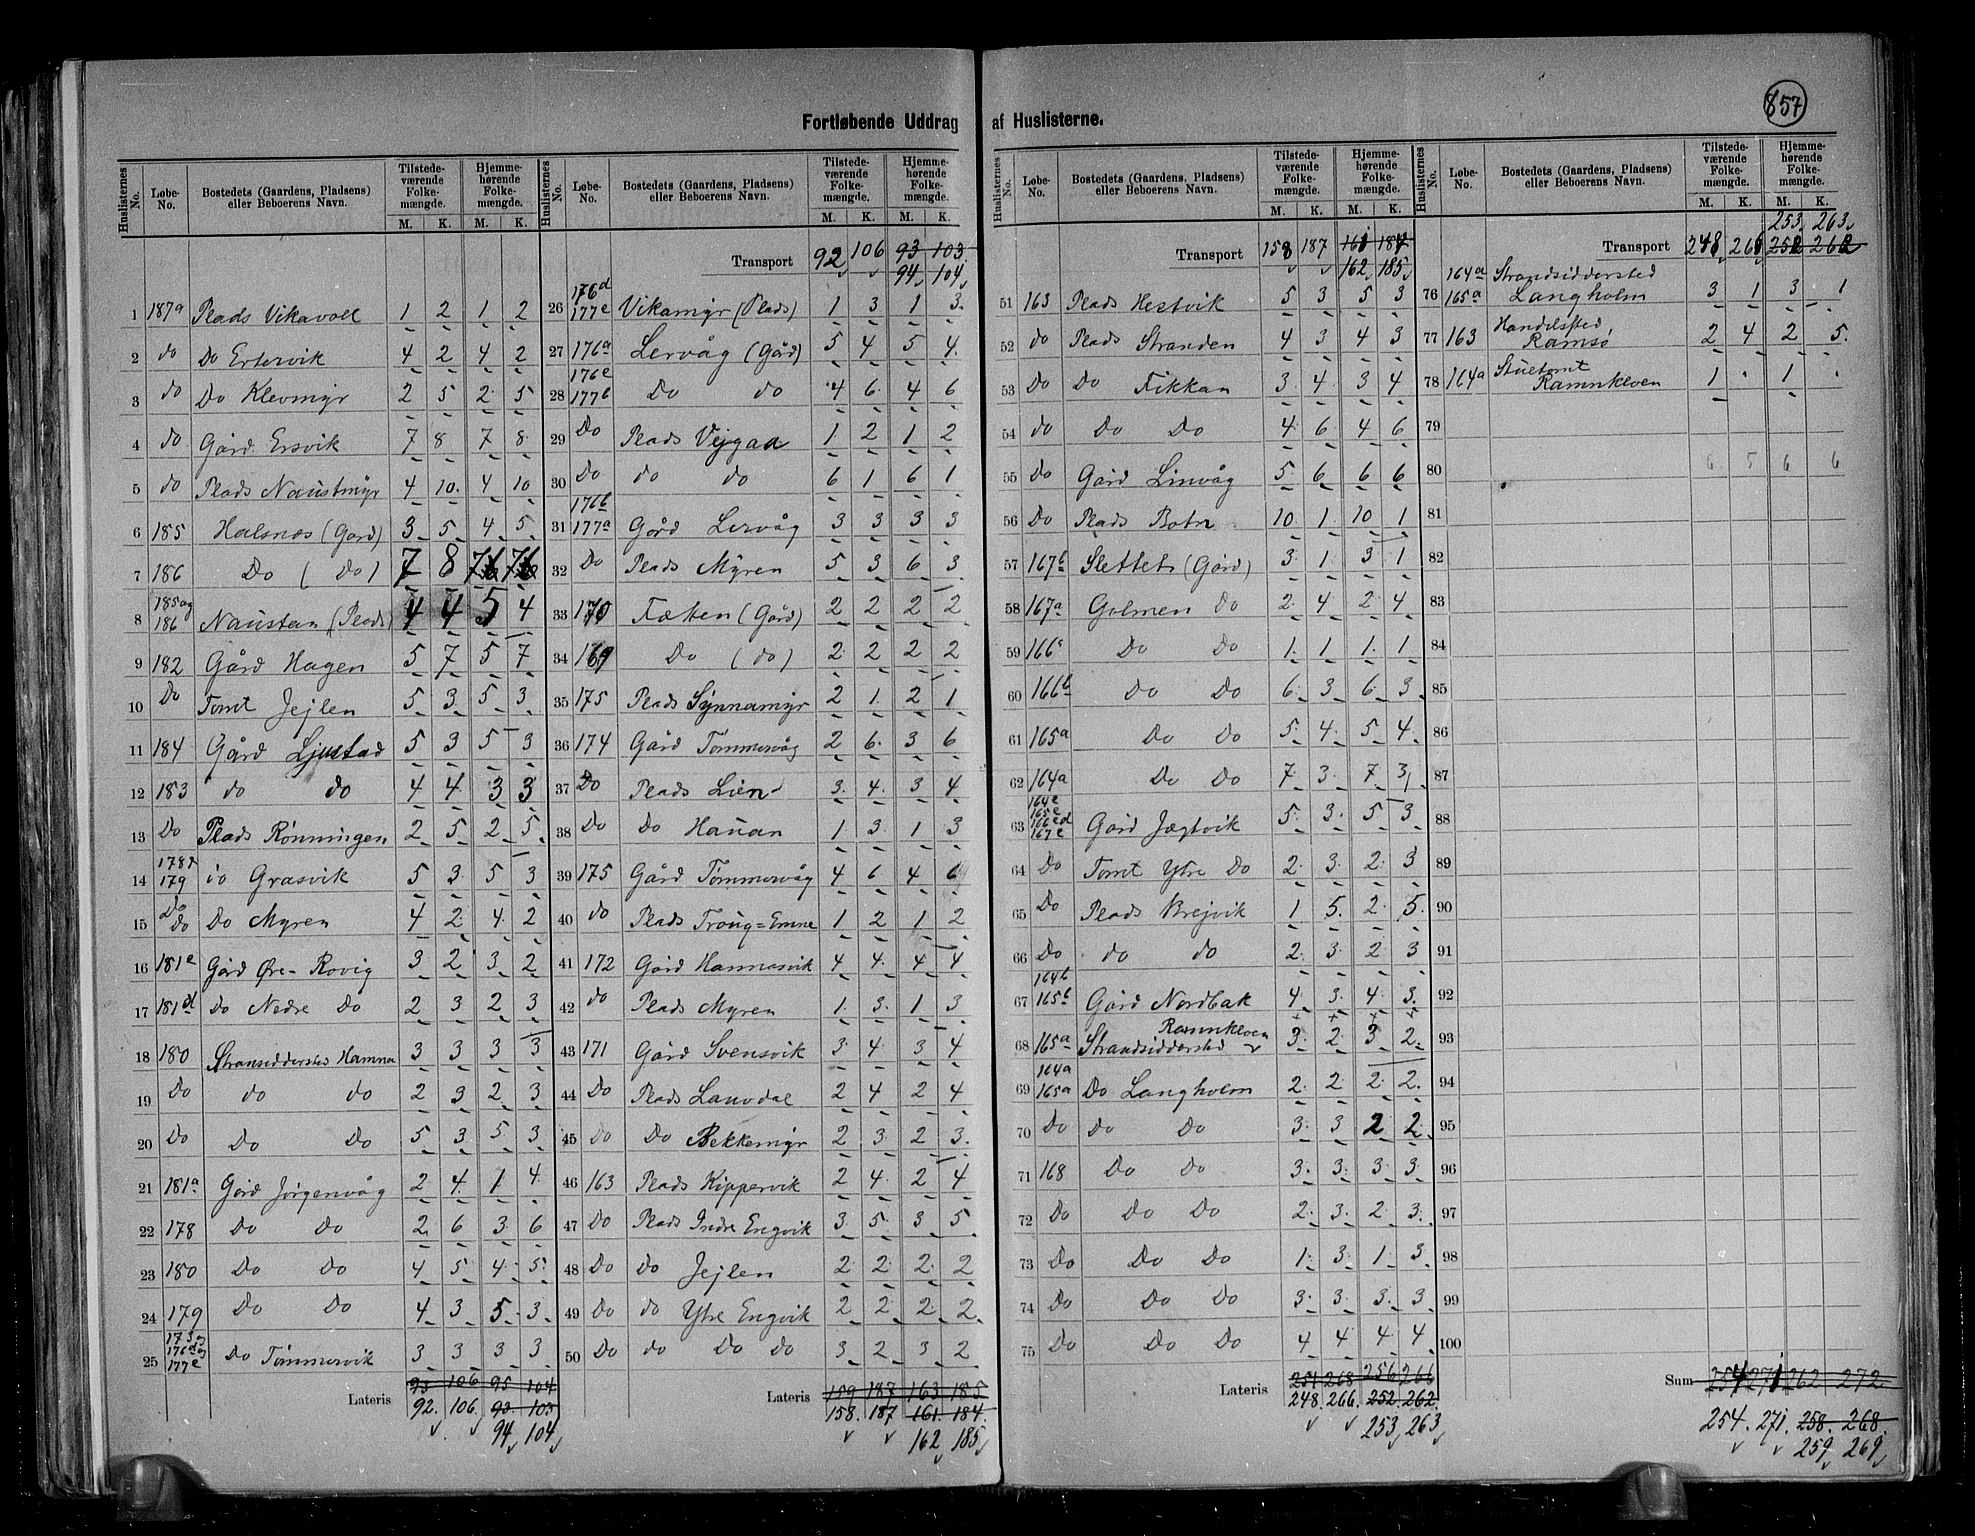 857
Fortløbende Uddrag af Huslisterne.
Huslisternes No. Løbe-No. Bostedets (Gaardens, Pladsens) eller Beboerens Navn. Tilstedeværende Folkemængde. M. K. Hjemmehørende Folkemængde. M. K.
1 187a Plads Vikavoll 1 2 1 2
2 do Do Ertervik 4 2 4 2
3 do Do Klevmyr 2 5 2 5
4 do Gård Ersvik 7 8 7 8
5 do Plads Naustmyr 4 10 4 10
6 185 Halsnes (Gård) 3 5 4 5
7 186 Do (Do) 7 8
8 185 og 186 Naustan (Plads) 4 4 5 4
9 182 Gård Hagen 5 7 5 7
10 Do Tomt Jejlen 5 3 5 3
11 184 Gård Ljustad 5 3 5 3
12 183 do do 4 4 3 3
13 Do Plads Rønningen 2 5 2 5
14 179 Grasvik 5 3 5 3
15 Do Do Do Myren 4 2 4 2
16 181e Gård Øre-Rovig 3 2 3 2
17 181d Do Nedre Do 2 3 2 3
18 180 Stransiddersted Hamna 3 3 3 3
19 Do do do 2 3 2 3
20 Do Do Do 5 3 5 3
21 181a Gård Jørgenvåg 2 4 1 4
22 178 Do Do 2 6 3 6
23 180 Do Do 4 5 4 5
24 179 Do Do 4 3 5 3
25 177e Do Tømmervik 3 3 3 3
Lateris 93 106 95 104
92 106 93 103
94 104
Huslisternes No. Løbe-No. Bostedets (Gaardens, Pladsens) eller Beboerens Navn. Tilstedeværende Folkemængde. M. K. Hjemmehørende Folkemængde. M. K.
Transport 92 106 93 103
94 104
26 176d 177c Vikamyr (Plads) 1 3 1 3
27 176a Lervåg (Gård) 5 4 5 4
28 176e 177b Do do 4 6 4 6
29 Do Plads Vejgaa 1 2 1 2
30 Do do do 6 1 6 1
31 176b 177a Gård Lervåg 3 3 3 3
32 Do Plads Myren 5 3 6 3
33 170 Fætten (Gård) 2 2 2 2
34 169 Do (do) 2 2 2 2
35 175 Plads Synnamyr 2 1 2 1
36 174 Gård Tømmervåg 2 6 3 6
37 Do Plads Lien 3 4 3 4
38 Do Do Haúan 1 3 1 3
39 175 Gård Tømmervåg 4 6 4 6
40 do Plads Troug=Emne 1 2 1 2
41 172 Gård Hannesvik 4 4 4 4
42 do Plads Myren 1 3 1 3
43 171 Gård Svensvik 3 4 3 4
44 Do Plads Lauvdal 2 4 2 4
45 Do Do Bekkemyr 2 3 2 3
46 163 Plads Kippervik 2 4 2 4
47 Do Plads Indre Engvik 3 5 3 5
48 Do do Jejlen 2 2 2 2
49 Do do Ytre Engvik 2 2 2 2
50 Do do Do do 3 2 3 2
Lateris 159 187 163 185
158 187 161 184
162 185
Huslisternes No. Løbe-No. Bostedets (Gaardens, Pladsens) eller Beboerens Navn. Tilstedeværende Folkemængde. M. K. Hjemmehørende Folkemængde. M. K.
Transport 158 187 161 184
162 185
51 163 Plads Hestvik 5 3 5 3
52 do Plads Stranden 4 3 4 3
53 Do Do Fikkan 3 4 3 4
54 do Do Do 4 6 4 6
55 Do Gård Linvåg 5 6 6 6
56 Do Plads Botn 10 1 10 1
57 167b Slettet (Gård) 3 1 3 1
58 167a Golmen Do 2 4 2 4
59 166c Do Do 1 1 1 1
60 166b Do Do 6 3 6 3
61 165a Do Do 5 4 5 4
62 164a Do Do 7 3 7 3
63 164c 165c 166cd 167c Gård Jægtvik 5 3 5 3
64 Do Tomt Ytre Do 2 3 2 3
65 Do Plads Brejvik 1 5 2 5
66 Do do do 2 3 2 3
67 164b 165b Gård Nordbak 4 3 4 3
68 165a Ramnkloen Strandsiddersted 3 2 3 2
69 164a 165a Do Langholm 2 2 2 2
70 Do Do Do 3 3 2 2
71 168 Do Do 3 3 3 3
72 Do Do Do 2 3 2 3
73 Do Do Do 1 3 1 3
74 Do Do Do 3 3 3 3
75 Do Do Do 4 4 4 4
Lateris 251 268 256 266
248 266 252 262
253 263
Huslisternes No. Løbe-No. Bostedets (Gaardens, Pladsens) eller Beboerens Navn. Tilstedeværende Folkemængde. M. K. Hjemmehørende Folkemængde. M. K.
253 263
Transport 248 266 252 262
76 164a 165a Strandsiddersted Langholm 3 1 3 1
77 163 Handelsted, Ramsø 2 4 2 5
78 164a Stuetomt Ramnkloen 1 . 1 .
79
80 6 5 6 6
81
82
83
84
85
86
87
88
89
90
91
92
93
94
95
96
97
98
99
100
Sum 254 271 262 272
254 271 258 268
259 269